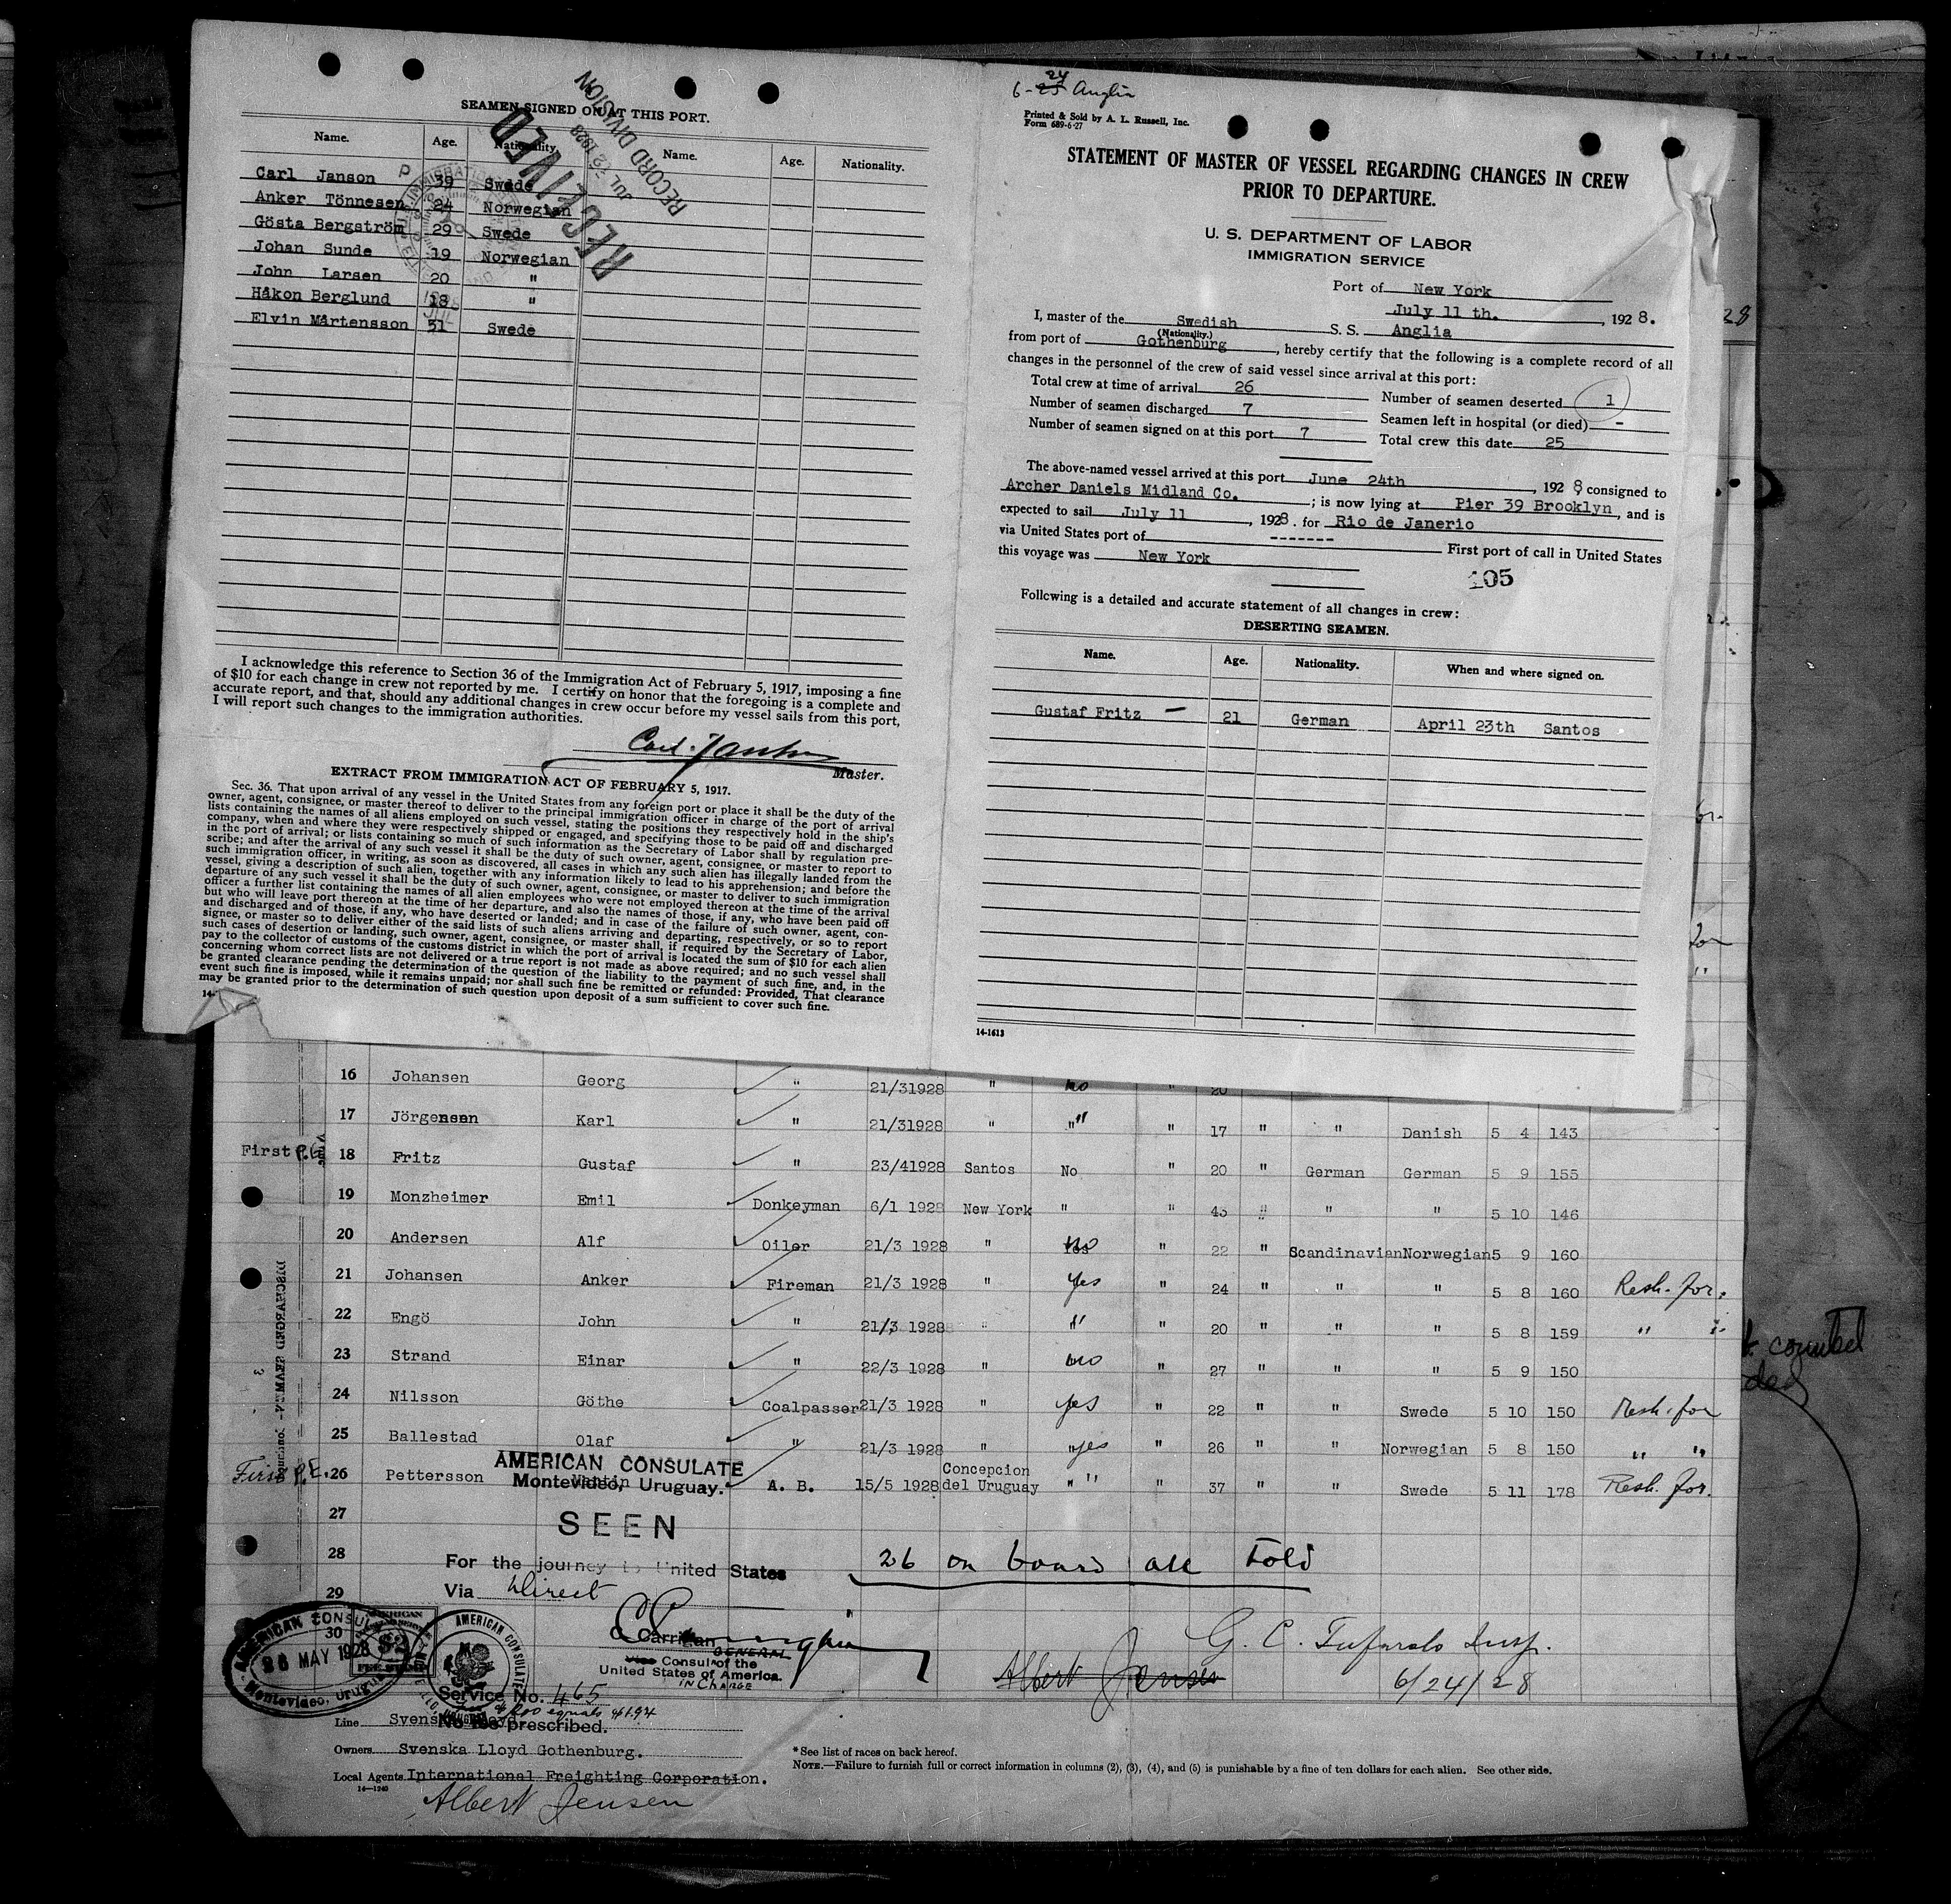 SEAMEN SIGNED ON AT THIS PORT.
Name. Age. Nationality. Name. Age. Nationality.
Carl Janson 39 Swede
Anker Tönnesen 24 Norwegian
Gösta Bergström 29 Swede
Johan Sunde 19 Norwegian
John Larsen 20 "
Håkon Berglund 18 "
Elvin Mårtensson 51 Swede
RECEIVED
JUL 12 1928
RECORD DIVISION
I acknowledge this reference to Section 36 of the Immigration Act of February 5, 1917, imposing a fine
of $10 for each change in crew not reported by me. I certify on honor that the foregoing is a complete and
accurate report, and that, should any additional changes in crew occur before my vessel sails from this port,
I will report such changes to the immigration authorities.
Carl. Janson
Master.
EXTRACT FROM IMMIGRATION ACT OF FEBRUARY 5, 1917.
Sec. 36. That upon arrival of any vessel in the United States from any foreign port or place it shall be the duty of the
owner, agent, consignee, or master thereof to deliver to the principal immigration officer in charge of the port of arrival
lists containing the names of all aliens employed on such vessel, stating the positions they respectively hold in the ship's
company, when and where they were respectively shipped or engaged, and specifying those to be paid off and discharged
in the port of arrival; or lists containing so much of such information as the Secretary of Labor shall by regulation pre-
scribe; and after the arrival of any such vessel it shall be the duty of such owner, agent, consignee, or master to report to
such immigration officer, in writing, as soon as discovered, all cases in which any such alien has illegally landed from the
vessel, giving a description of such alien, together with any information likely to lead to his apprehension; and before the
departure of any such vessel it shall be the duty of such owner, agent, consignee, or master to deliver to such immigration
officer a further list containing the names of all alien employees who were not employed thereon at the time of the arrival
but who will leave port thereon at the time of her departure, and also the names of those, if any, who have been paid off
and discharged and of those, if any, who have deserted or landed; and in case of the failure of such owner, agent, con-
signee, or master so to deliver either of the said lists of such aliens arriving and departing, respectively, or so to report
such cases of desertion or landing, such owner, agent, consignee, or master shall, if required by the Secretary of Labor,
pay to the collector of customs of the customs district in which the port of arrival is located the sum of $10 for each alien
concerning whom correct lists are not delivered or a true report is not made as above required; and no such vessel shall
be granted clearance pending the determination of the question of the liability to the payment of such fine, and, in the
event such fine is imposed, while it remains unpaid; nor shall such fine be remitted or refunded: Provided, That clearance
may be granted prior to the determination of such question upon deposit of a sum sufficient to cover such fine.
14-
24
6-25 Anglia
Printed & Sold by A. L. Russell, Inc.
Form 689-6-27
STATEMENT OF MASTER OF VESSEL REGARDING CHANGES IN CREW
PRIOR TO DEPARTURE.
U. S. DEPARTMENT OF LABOR
IMMIGRATION SERVICE
Port of New York
July 11 th., 1928.
I, master of the Swedish S. S. Anglia
(Nationality.)
from port of Gothenburg, hereby certify that the following is a complete record of all
changes in the personnel of the crew of said vessel since arrival at this port:
Total crew at time of arrival 26 Number of seamen deserted 1
Number of seamen discharged 7 Seamen left in hospital (or died) -
Number of seamen signed on at this port 7 Total crew this date 25
The above-named vessel arrived at this port June 24th, 1928 consigned to
Archer Daniels Midland Co. ; is now lying at Pier 39 Brooklyn, and is
expected to sail July 11, 1928. for Rio de Janerio
via United States port of ------- First port of call in United States
this voyage was New York
105
Following is a detailed and accurate statement of all changes in crew:
DESERTING SEAMEN.
Name. Age. Nationality. When and where signed on.
Gustaf Fritz — 21 German April 23th Santos
14-1613
28
16 Johansen Georg " 21/31928 " No " 20
17 Jörgensen Karl " 21/31928 " " " 17 " " Danish 5 4 143
First P.E. 18 Fritz Gustaf " 23/41928 Santos No " 20 " German German 5 9 155
19 Monzheimer Emil Donkeyman 6/1 1928 New York " " 43 " " " 5 10 146
20 Andersen Alf Oiler 21/3 1928 " No " 22 " Scandinavian Norwegian 5 9 160
21 Johansen Anker Fireman 21/3 1928 " Yes " 24 " " " 5 8 160 Resh. for.
22 Engö John " 21/3 1928 " " " 20 " " " 5 8 159 " "
23 Strand Einar " 22/3 1928 " No " 27 " " " 5 9 150
24 Nilsson Göthe Coalpasser 21/3 1928 " yes " 22 " " Swede 5 10 150 Resh. for
25 Ballestad Olaf " 21/3 1928 " yes " 26 " " Norwegian 5 8 150 " "
First P.E. 26 Pettersson A. B. 15/5 1928 Concepcion del Uruguay " " 37 " " Swede 5 11 178 Resh. for.
27
28
29
30
DISCHARGED SEAMEN
AMERICAN CONSULATE
Montevideo, Uruguay.
SEEN
For the journey to United States
Via Direct
26 on board all told
C Carrigan
GENERAL
Vice Consul of the
United States of America.
IN CHARGE
AMERICAN CONSULATE
26 MAY 1928
Montevideo, Uruguay
AMERICAN CONSULATE
Service No. 465
equals $1.94
No fee prescribed.
G. C. Tufarolo Insp.
6/24/28
Albert Jensen
Line Svenska Lloyd
Owners Svenska Lloyd Gothenburg.
Local Agents International Freighting Corporation.
14-1240
Albert Jensen
* See list of races on back hereof.
NOTE.—Failure to furnish full or correct information in columns (2), (3), (4), and (5) is punishable by a fine of ten dollars for each alien. See other side.